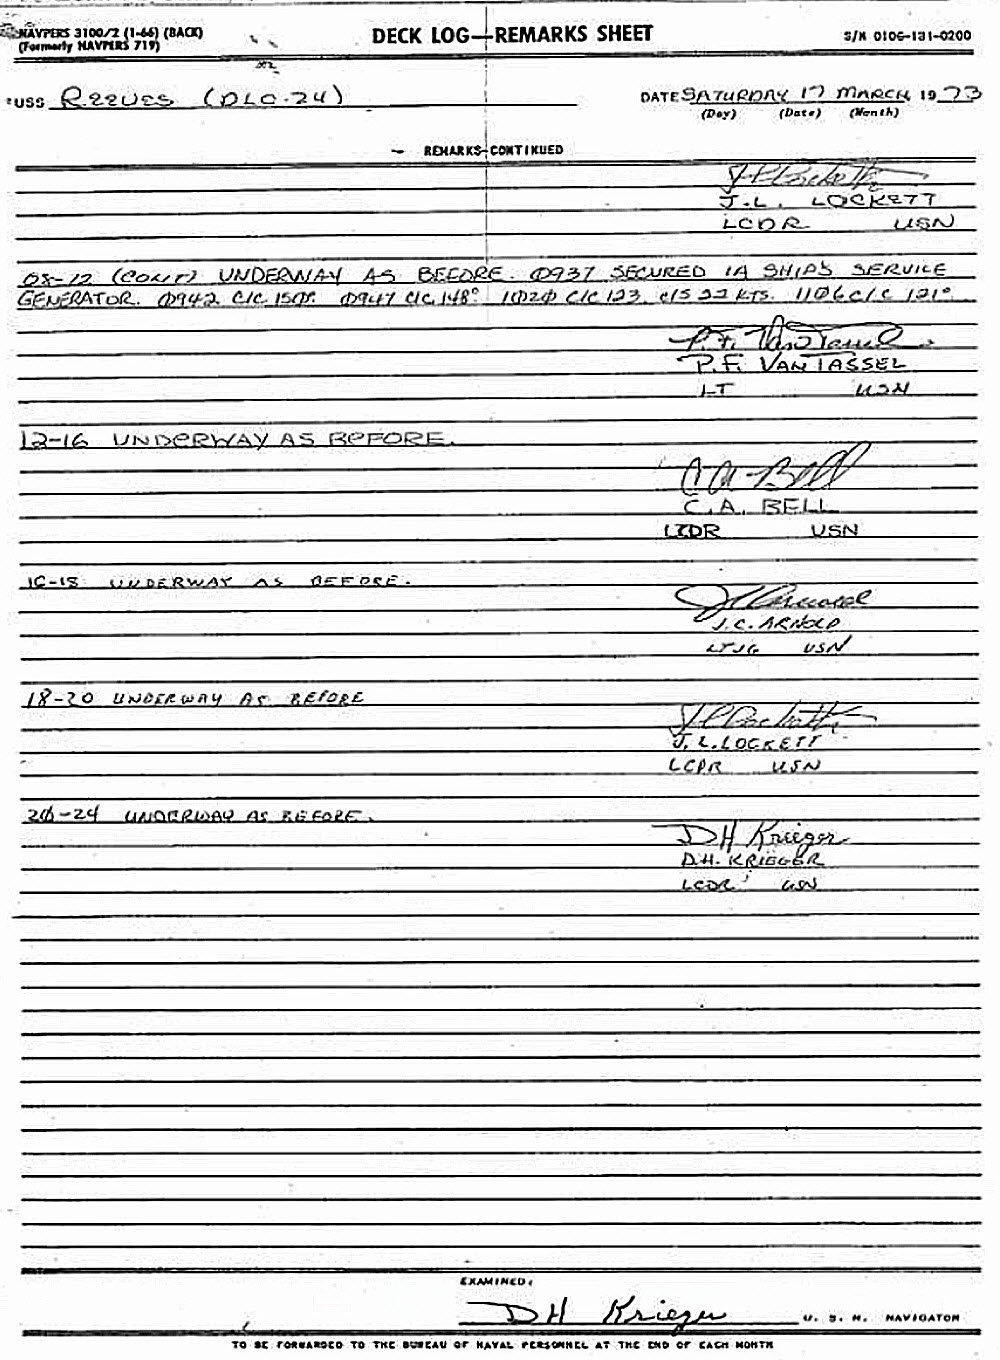 NAVPERS 3100/2 (1-66) (BACK)
(Formerly NAVPERS 719)
DECK LOG—REMARKS SHEET
S/N 0106-131-0200
USS REEVES (DLG-24)
DATE SATURDAY 17 MARCH 1973
(Day) (Date) (Month)
REMARKS-CONTINUED
J.L. LOCKETT
LCDR USN
08-12 (CONT) UNDERWAY AS BEFORE. 0937 SECURED 1A SHIPS SERVICE
GENERATOR. 0942 C/C 150°. 0947 C/C 148° 1020 C/C 123, C/S 22 KTS. 1106 C/C 121°
P.F. VanTassel
P.F. VANTASSEL
LT USN
12-16 UNDERWAY AS BEFORE.
C A Bell
C.A. BELL
LCDR USN
16-18 UNDERWAY AS BEFORE.
J.C. ARNOLD
LTJG USN
18-20 UNDERWAY AS BEFORE
J.L. LOCKETT
LCDR USN
20-24 UNDERWAY AS BEFORE.
DH Krieger
D.H. KRIEGER
LCDR USN
EXAMINED:
DH Krieger U. S. N. NAVIGATOR
TO BE FORWARDED TO THE BUREAU OF NAVAL PERSONNEL AT THE END OF EACH MONTH